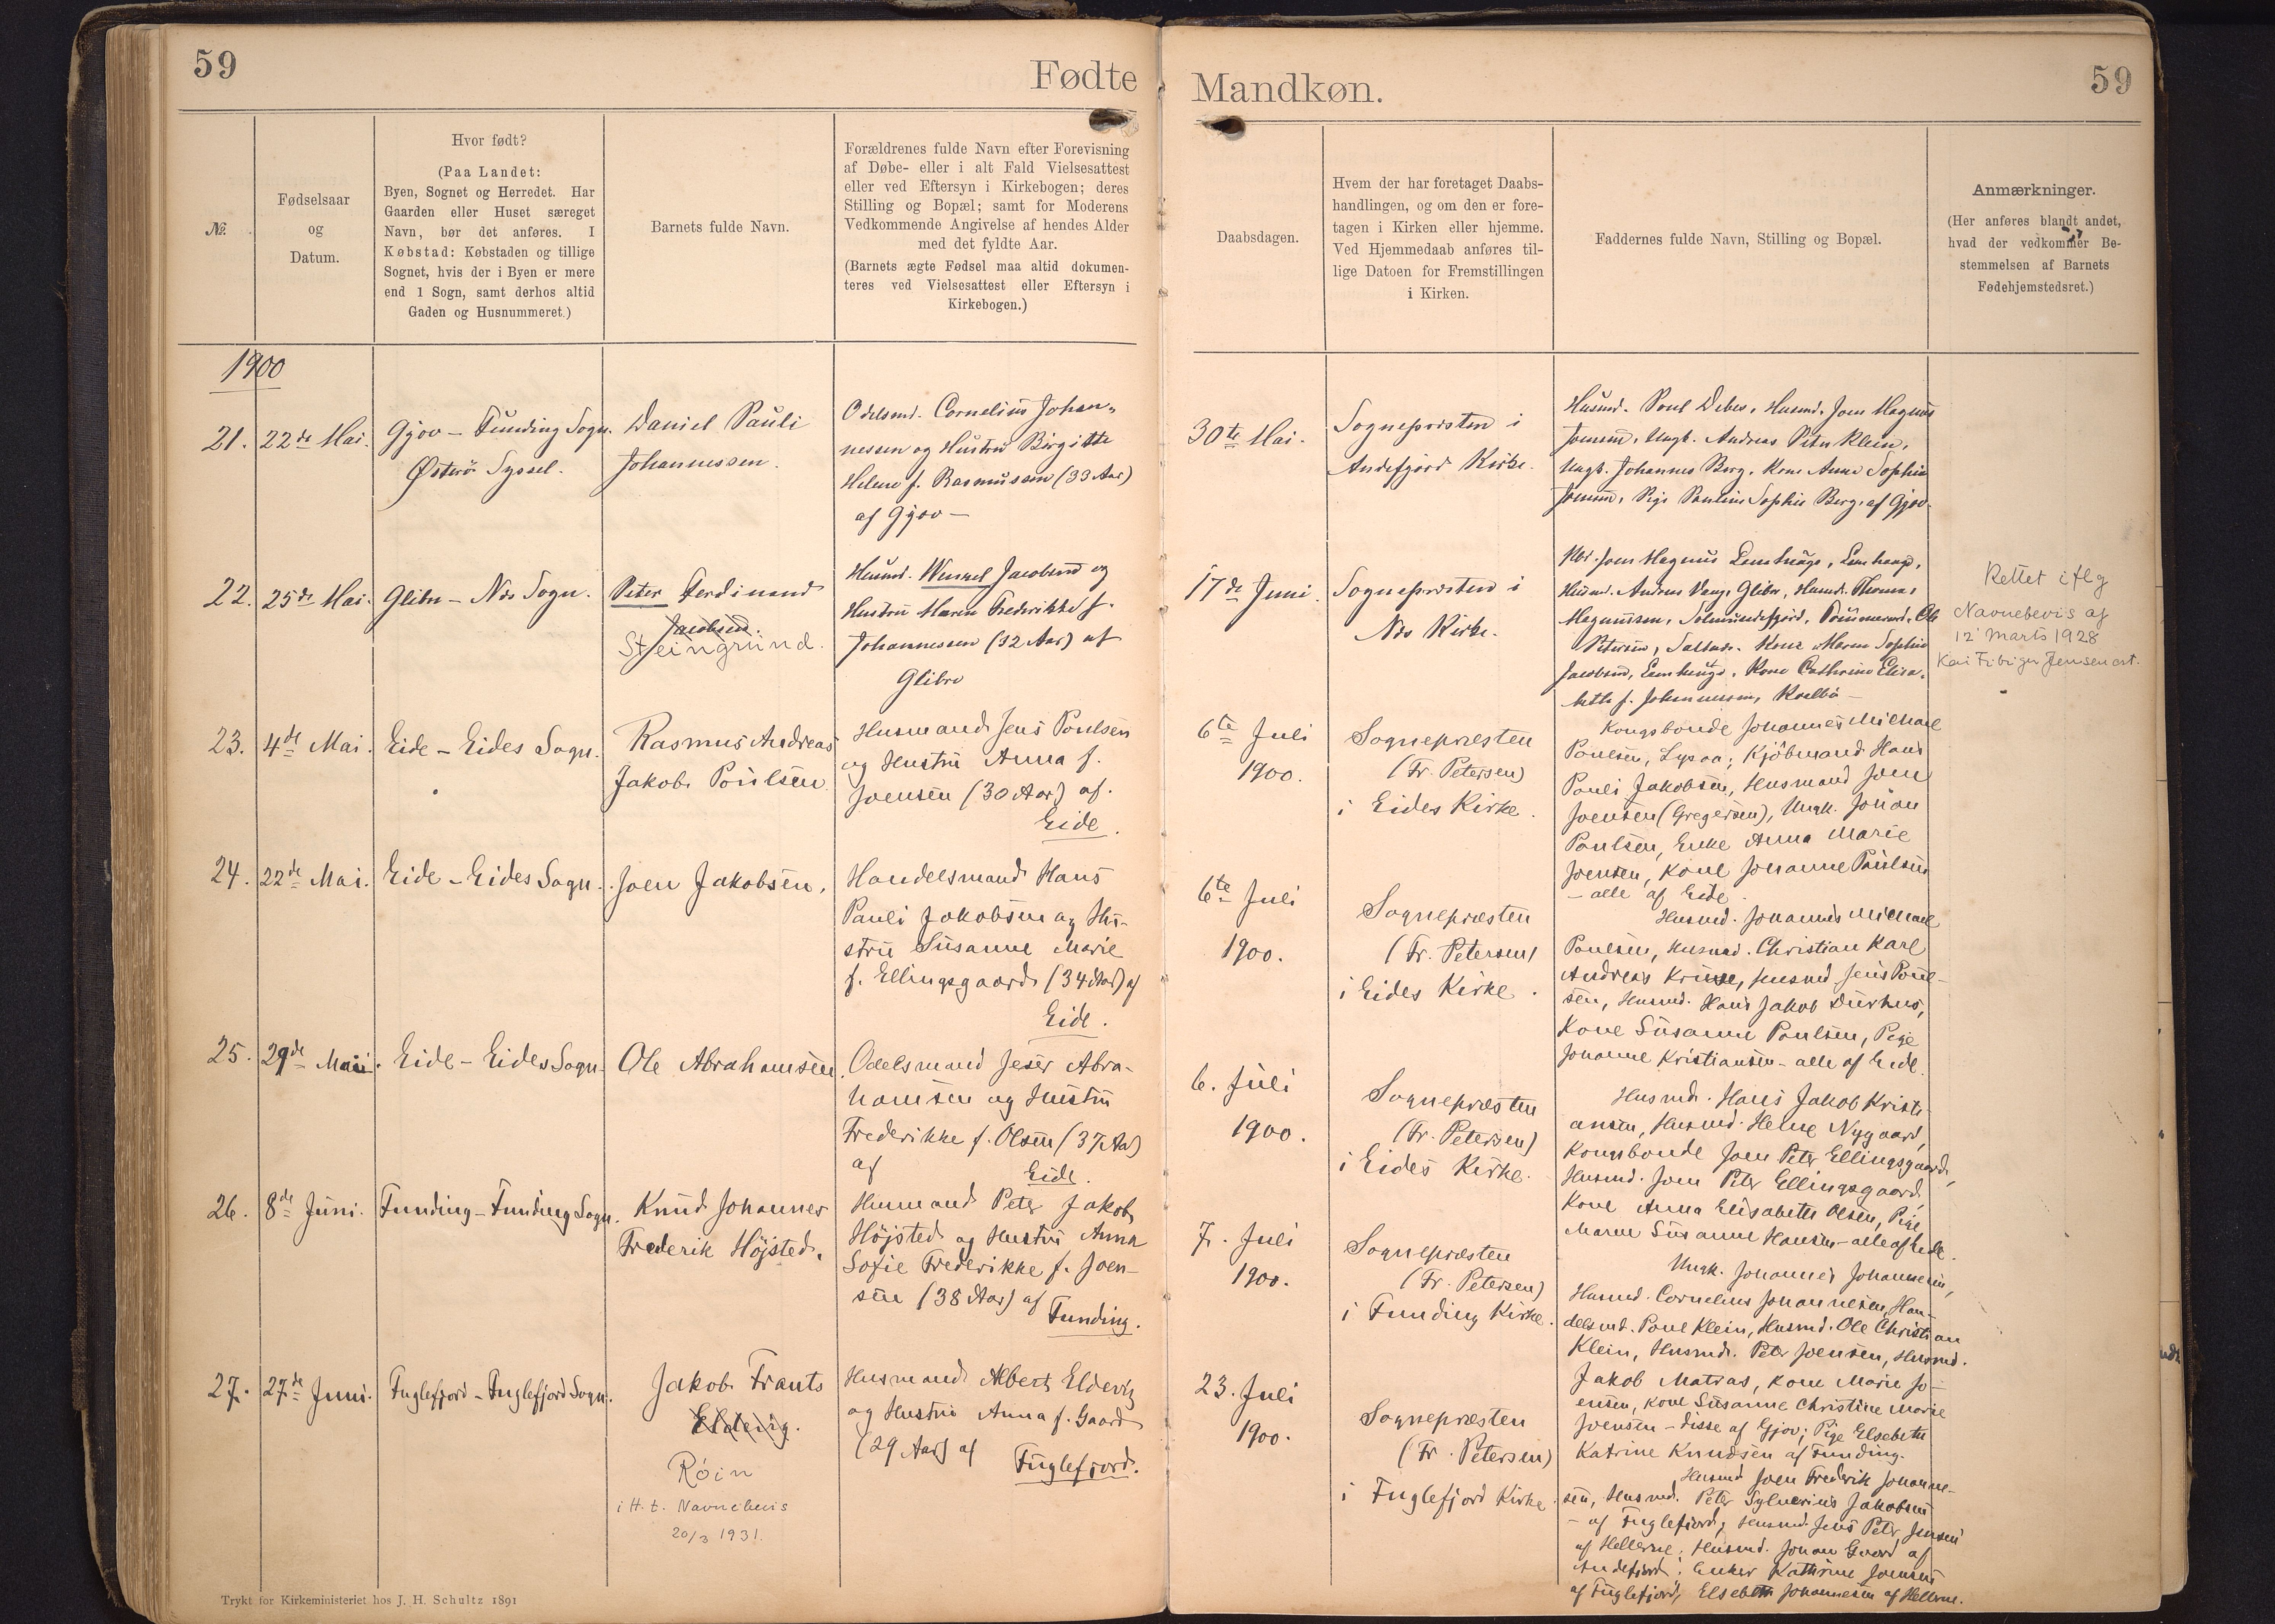 59
Fødte
Mandkøn.
59
No.
Fødselsaar
og
Datum.
Hvor født?
(Paa Landet:
Byen, Sognet og Herredet. Har
Gaarden eller Huset særeget
Navn, bør det anføres. I
Købstad: Købstaden og tillige
Sognet, hvis der i Byen er mere
end 1 Sogn, samt derhos altid
Gaden og Husnummeret.)
Barnets fulde Navn.
Forældrenes fulde Navn efter Forevisning
af Døbe- eller i alt Fald Vielsesattest
eller ved Eftersyn i Kirkebogen; deres
Stilling og Bopæl; samt for Moderens
Vedkommende Angivelse af hendes Alder
med det fyldte Aar.
(Barnets ægte Fødsel maa altid dokumen-
teres ved Vielsesattest eller Eftersyn i
Kirkebogen.)
Daabsdagen.
Hvem der har foretaget Daabs-
handlingen, og om den er fore-
tagen i Kirken eller hjemme.
Ved Hjemmedaab anføres til-
lige Datoen for Fremstillingen
i Kirken.
Faddernes fulde Navn, Stilling og Bopæl.
Anmærkninger.
(Her anføres blandt andet,
hvad der vedkommer Be-
stemmelsen af Barnets
Fødehjemstedsret.)
1900
21. 22de Mai.
Gjov - Funding Sogn.
Østerö Syssel.
Daniel Pauli
Johannessen.
Odelsmd. Cornelius Johan-
nessen og Hustru Birgitte
Helene f. Rasmussen (33 Aar)
af Gjov -
30te Mai.
Sognepræsten i
Andefjord Kirke.
Husmd. Poul Debes, Husmd. Joen Magnus
Joensen, Ungk. Andreas Peter Klein,
Ungk. Johannes Berg, Kone Anne Sophie
Joensen, Pige Pauline Sophie Berg, af Gjov.
22. 25de Mai.
Glibre - Næs Sogn.
Peter Ferdinand
Jacobsen.
Steingrund.
Husmd. Wenzel Jacobsen og
Hustru Maren Frederikke f.
Johannessen (32 Aar) af
Glibre
17de Juni.
Sognepræsten i
Næs Kirke.
Joen Magnus Lamhauge, Lamhauge,
Husmd. Andreas Vang, Glibre, Husmd. Thomas
Magnussen, Solmundefjord, Ole
Petersen, Saltnæs. Kone Maren Sophie
Jacobsen, Lamhauge, Kone Cathrine Elisa-
beth f. Johannessen,
Rettet iflg
Navnebevis af
12 Marts 1928
Kai Fibiger Jensen cst.
23. 4de Mai.
Eide - Eides Sogn.
Rasmus Andreas
Jakob Poulsen
Husmand Jens Poulsen
og Hustru Anna f.
Joensen (30 Aar) af.
Eide.
6te Juli
1900.
Sognepræsten
(Fr. Petersen)
i Eides Kirke.
Kongsbonde Johannes Michael
Poulsen, Lysaa; Kjöbmand Hans
Pauli Jakobsen, Husmand Joen
Joensen (Gregersen), Ungk. Johan
Poulsen, Enke Anna Marie
Joensen, Kone Johanne Poulsen
- alle af Eide.
24. 22de Mai.
Eide - Eides Sogn.
Joen Jakobsen.
Handelsmand Hans
Pauli Jakobsen og Hu-
stru Susanne Marie
f. Ellingsgaard (34 Aar) af
Eide.
6te Juli
1900.
Sognepræsten
(Fr. Petersen)
i Eides Kirke.
Husmd. Johannes Michael
Poulsen, Husmd. Christian Karl
Andreas Kruse, Husmd Jens Poul-
sen, Husmd. Hans Jakob Durhus,
Kone Susanne Poulsen, Pige
Johanne Kristiansen - alle af Eide.
25. 29de Mai.
Eide - Eides Sogn.
Ole Abrahamsen.
Odelsmand Jeser Abra-
hamsen og Hustru
Frederikke f. Olsen (37 Aar)
af
Eide.
6. Juli
1900.
Sognepræsten
(Fr. Petersen)
i Eides Kirke.
Husmd. Hans Jakob Kristi-
ansen, Husmd. Helne Nygaard,
Kongsbonde Joen Peter Ellingsgaard,
Husmd. Joen Peter Ellingsgaard,
Kone Anna Elisabeth Olsen, Pige
Maren Susanne Hansen - alle af Eide.
26. 8de Juni.
Funding - Funding Sogn.
Knud Johannes
Frederik Højsted.
Husmand Peter Jakob
Højsted og Hustru Anna
Sofie Frederikke f. Joen-
sen (38 Aar) af
Funding.
7. Juli
1900.
Sognepræsten
(Fr. Petersen)
i Funding Kirke.
Ungk. Johannes Johannesen,
Husmd. Cornelius Johannesen, Han-
delsmd. Poul Klein, Husmd. Ole Christian
Klein, Husmd. Peter Joensen, Husmd.
Jakob Matras, Kone Marie Jo-
ensen, Kone Susanne Christine Marie
Joensen - disse af Gjov; Pige Elsebeth
Katrine Knudsen af Funding.
27. 27de Juni.
Fuglefjord - Fuglefjord Sogn.
Jakob Frants
Eldevig.
Róin
i H. t. Navnebevis
20/3 1931.
Husmand Albert Eldevig
og Hustru Anna f. Gaard
(29 Aar) af
Fuglefjord.
23. Juli
1900.
Sognepræsten
(Fr. Petersen)
i Fuglefjord Kirke.
Husmd Joen Frederik Johanne-
sen, Husmd. Peter Sylverius Jakobsen
- af Fuglefjord; Husmd. Jens Peter Jensen
af Hellerne; Husmd. Johan Gaard af
Andefjord; Enker Kathrine Joensen
af Fuglefjord, Elsebeth Johannesen af Hellerne.
Trykt for Kirkeministeriet hos J. H. Schultz 1891